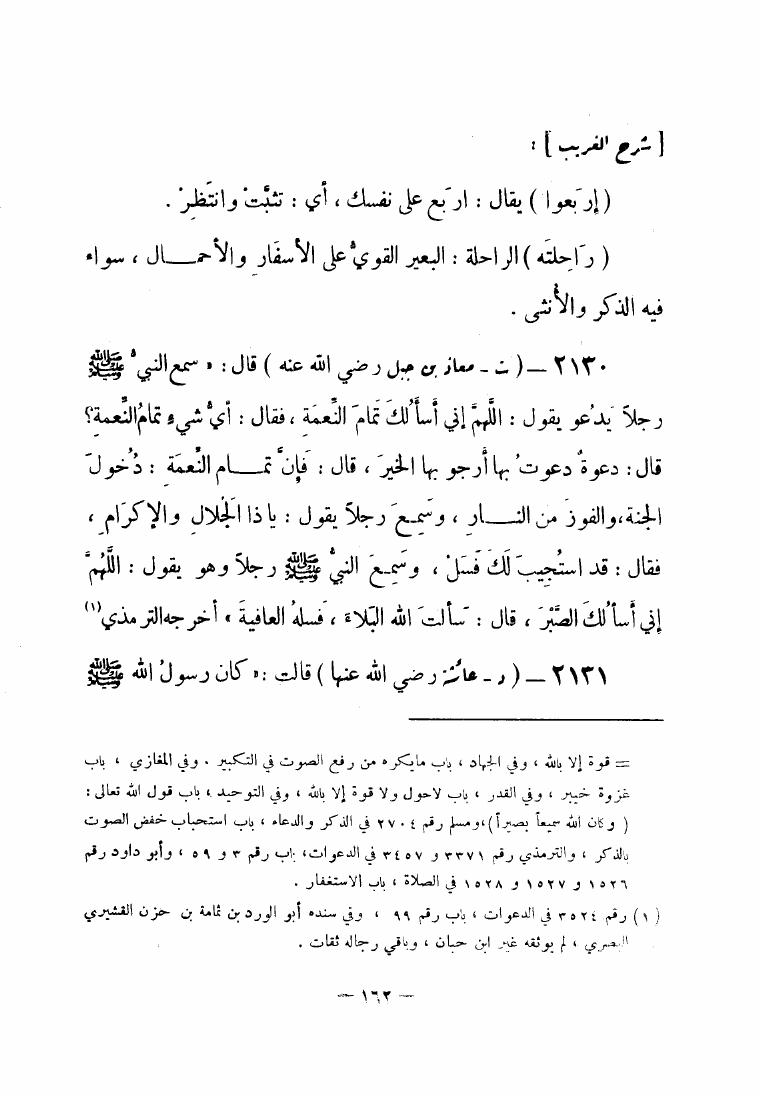 [ شرح الغريب ] :
( إرَبعوا ) يقال : ارَبع على نفسك ، أي : تثبَّتْ وانتَظِرْ .
( رَاحِلتَه ) الراحلة : البعير القويُّ على الأسفَارِ والأحمـال ، سواء
فيه الذكر والأُنثى .
٢١٣٠ – ( ت - معاذ بن جبل رضي الله عنه ) قال : « سمع النبيُّ ﷺ
رجلاً يَدْعو يقول : اللَّهمَّ إني أَسأَلُكَ تَمَامَ النِّعمَةِ ، فقال : أَيُّ شيءٍ تمامُ النِّعمةِ؟
قال : دعوةٌ دعوتُ بها أَرجو بها الخيرَ ، قال : فَإِنَّ تمـام النِّعمَةِ : دُخولَ
الجنة، والفوزَ من النـــار ، وسَمِـعَ رجلاً يقول : ياذا الَجْلالِ والإِكرَامِ ،
فقال : قد استُجِيبَ لَكَ فَسَلْ ، وسَمِـعَ النبيُّ ﷺ رجلاً وهو يقول : اللَّهُمَّ
إني أسأَلُكَ الصَّبْرَ ، قال : سَألتَ الله البَلاءَ ، فَسلهُ العافيةَ » أخرجه الترمذي(١)
٢١٣١ – ( د - عائشة رضي الله عنها ) قالت : « كان رسولُ الله ﷺ
= قوة إلا بالله ، وفي الجهاد ، باب مايكره من رفع الصوت في التكبير . وفي المغازي ، باب
غزوة خيبر ، وفي القدر ، باب لاحول ولا قوة إلا بالله ، وفي التوحيد ، باب قول الله تعالى :
( وكان الله سميعاً بصيراً )، ومسلم رقم ٢٧٠٤ في الذكر والدعاء ، باب استحباب خفض الصوت
بالذكر ، والترمذي رقم ٣٣٧١ و ٣٤٥٧ في الدعوات، باب رقم ٣ و ٥٩ ، وأبو داود رقم
١٥٢٦ و ١٥٢٧ و ١٥٢٨ في الصلاة ، باب الاستغفار .
(١) رقم ٣٥٢٤ في الدعوات ، باب رقم ٩٩ ، وفي سنده أبو الورد بن ثمامة بن حزن القشيري
البصري ، لم يوثقه غير ابن حبان ، وباقي رجاله ثقات .
– ١٦٢ –